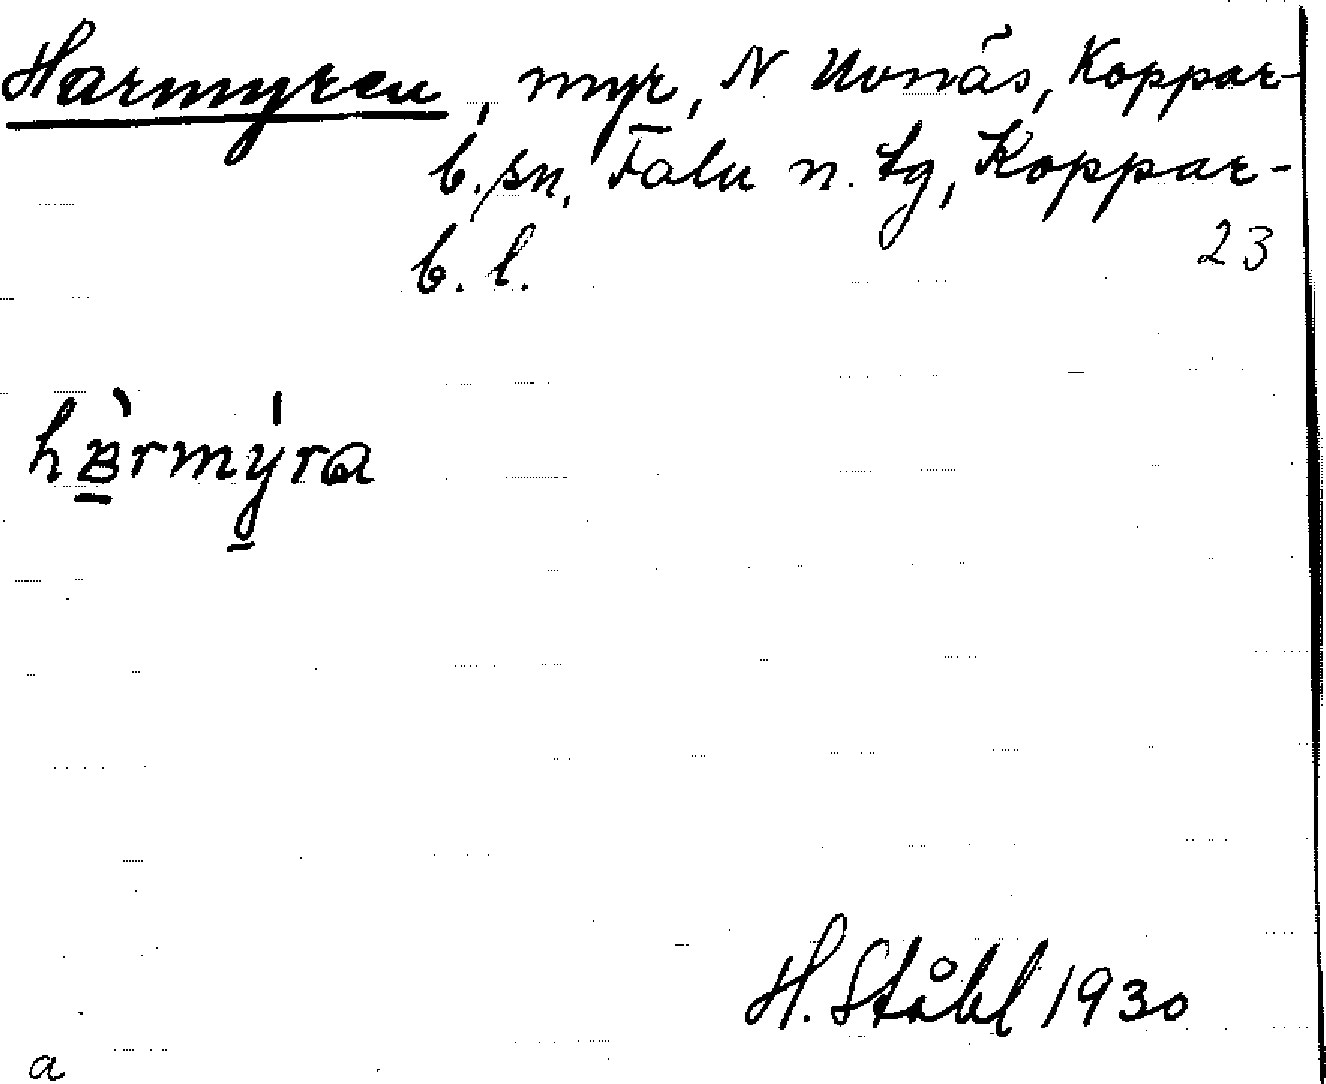 Harmyren, myr, N Uvnäs, Koppar-
b. sn, Falu n. tg, Koppar-
b. l.
23
H. Ståhl 1930
a